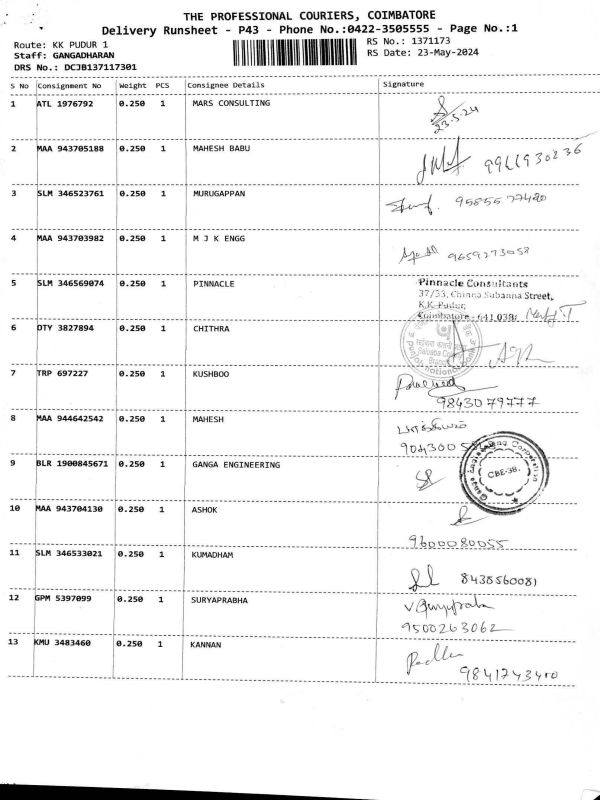 THE PROFESSIONAL COURIERS, COIMBATORE
Delivery Runsheet - P43 - Phone No.:0422-3505555 - Page No.:1
Route: KK PUDUR 1 RS No.: 1371173
Staff: GANGADHARAN RS Date: 23-May-2024
DRS No.: DCJB137117301
S No Consignment No Weight PCS Consignee Details Signature
1 ATL 1976792 0.250 1 MARS CONSULTING
23.5.24
2 MAA 943705188 0.250 1 MAHESH BABU
3 SLM 346523761 0.250 1 MURUGAPPAN
9585577420
4 MAA 943703982 0.250 1 M J K ENGG
9659273058
5 SLM 346569074 0.250 1 PINNACLE Pinnacle Consultants
37/33, Chinna Subanna Street,
K.K. Pudur,
Coimbatore - 641 038.
6 DTY 3827894 0.250 1 CHITHRA
7 TRP 697227 0.250 1 KUSHBOO
9843079777
8 MAA 944642542 0.250 1 MAHESH
9 BLR 1900845671 0.250 1 GANGA ENGINEERING
Ganga Engineering Corporation
CBE-38.
10 MAA 943704130 0.250 1 ASHOK
9600080055
11 SLM 346533021 0.250 1 KUMADHAM
8438560081
12 GPM 5397099 0.250 1 SURYAPRABHA
V. Suryaprabha
9500263062
13 KMU 3483460 0.250 1 KANNAN
9841743400